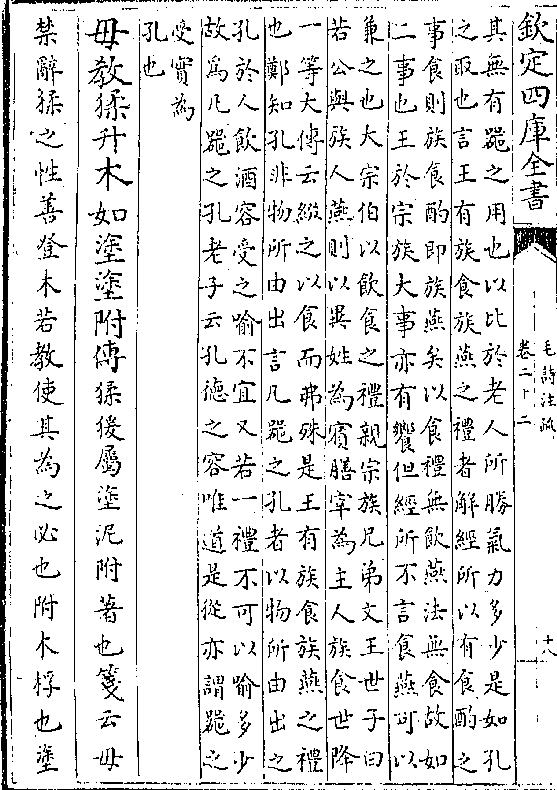 欽定四庫全書
毛詩注疏
卷二十二
十八
其無有器之用也以比於老人所勝氣力多少是如孔
之取也言王有族食族燕之禮者解經所以有食酌之
事食則族食酌即族燕矣以食禮無飲燕法無食故如
二事也王於宗族大事亦有饗但經所不言食燕可以
兼之也大宗伯以飲食之禮親宗族兄弟文王世子曰
若公與族人燕則以異姓為賓膳宰為主人族食世降
一等大傳云綴之以食而弗殊是王有族食族燕之禮
也鄭知孔非物所由出言凡器之孔者以物所由出之
孔於人飲酒容受之喻不宜又若一禮不可以喻多少
故為凡器之孔老子云孔德之容唯道是從亦謂器之
受實為
孔也
毋教猱升木如塗塗附傳猱猨屬塗泥附著也箋云毋
禁辭猱之性善登木若教使其為之必也附木桴也塗